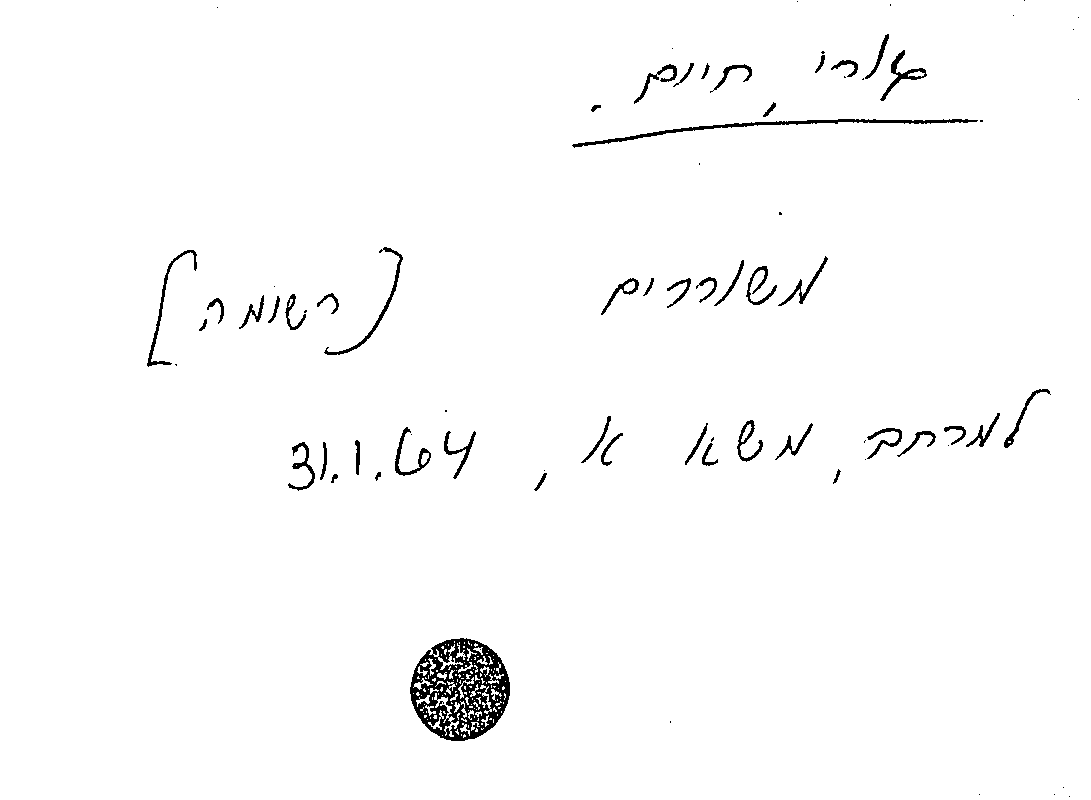 גורי, חיים.
משוררים [רשומה]
למרחב, משא א, 31.1.64